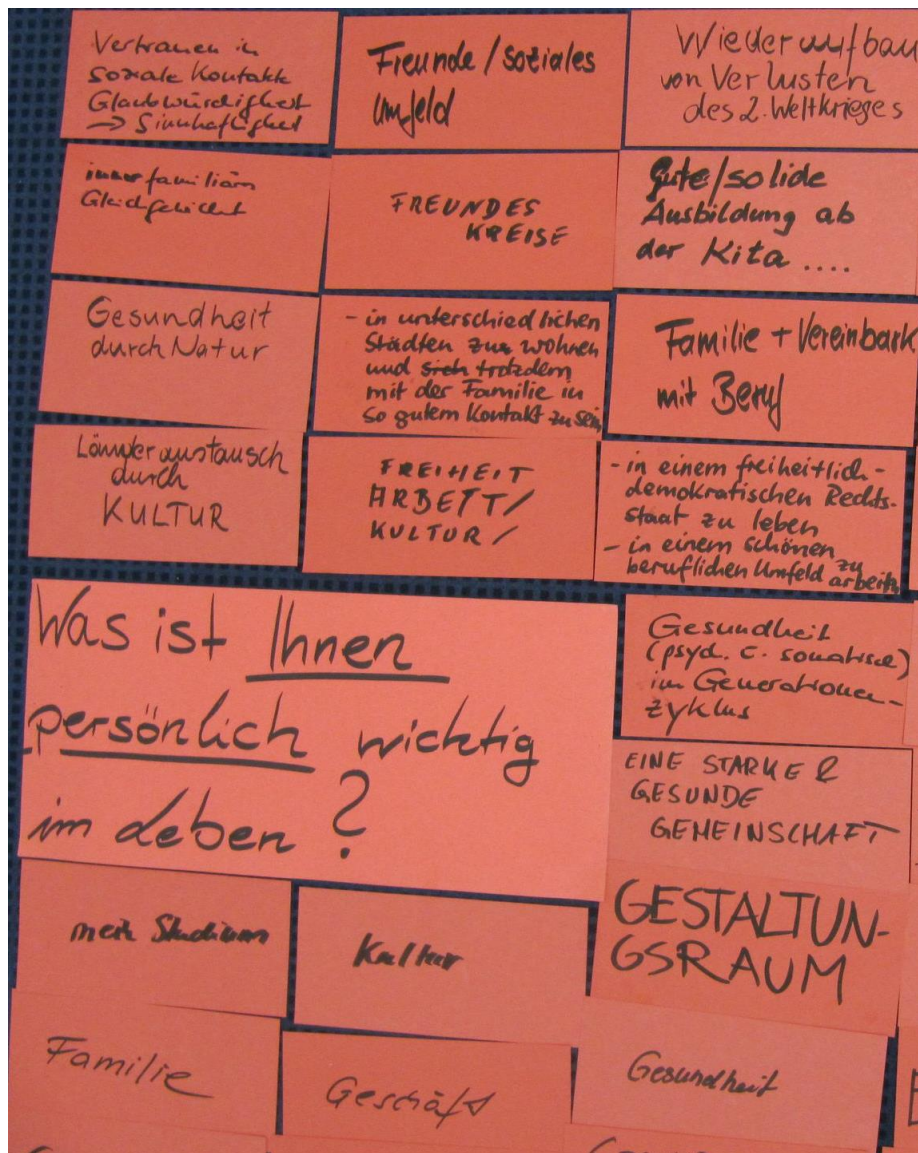 Vertrauen in
soziale Kontakte
Glaubwürdigkeit
→ Sinnhaftigkeit
Freunde / soziales
Umfeld
Wiederaufbau
von Verlusten
des 2. Weltkrieges
innerfamiliäres
Gleichgewicht
FREUNDES
KREISE
gute/solide
Ausbildung ab
der Kita ....
Gesundheit
durch Natur
- in unterschiedlichen
Städten zu wohnen
und sich trotzdem
mit der Familie in
so gutem Kontakt zu sein
Familie + Vereinbark
mit Beruf
Länderaustausch
durch
KULTUR
FREIHEIT
ARBEIT/
KULTUR/
- in einem freiheitlich-
demokratischen Rechts-
staat zu leben
- in einem schönen
beruflichen Umfeld zu
arbeiten
Was ist Ihnen
persönlich wichtig
im Leben?
Gesundheit
(psych. c. somatisch)
im Generationen-
zyklus
EINE STARKE &
GESUNDE
GEMEINSCHAFT
mein Studium
Kultur
GESTALTUN-
GSRAUM
Familie
Geschäft
Gesundheit